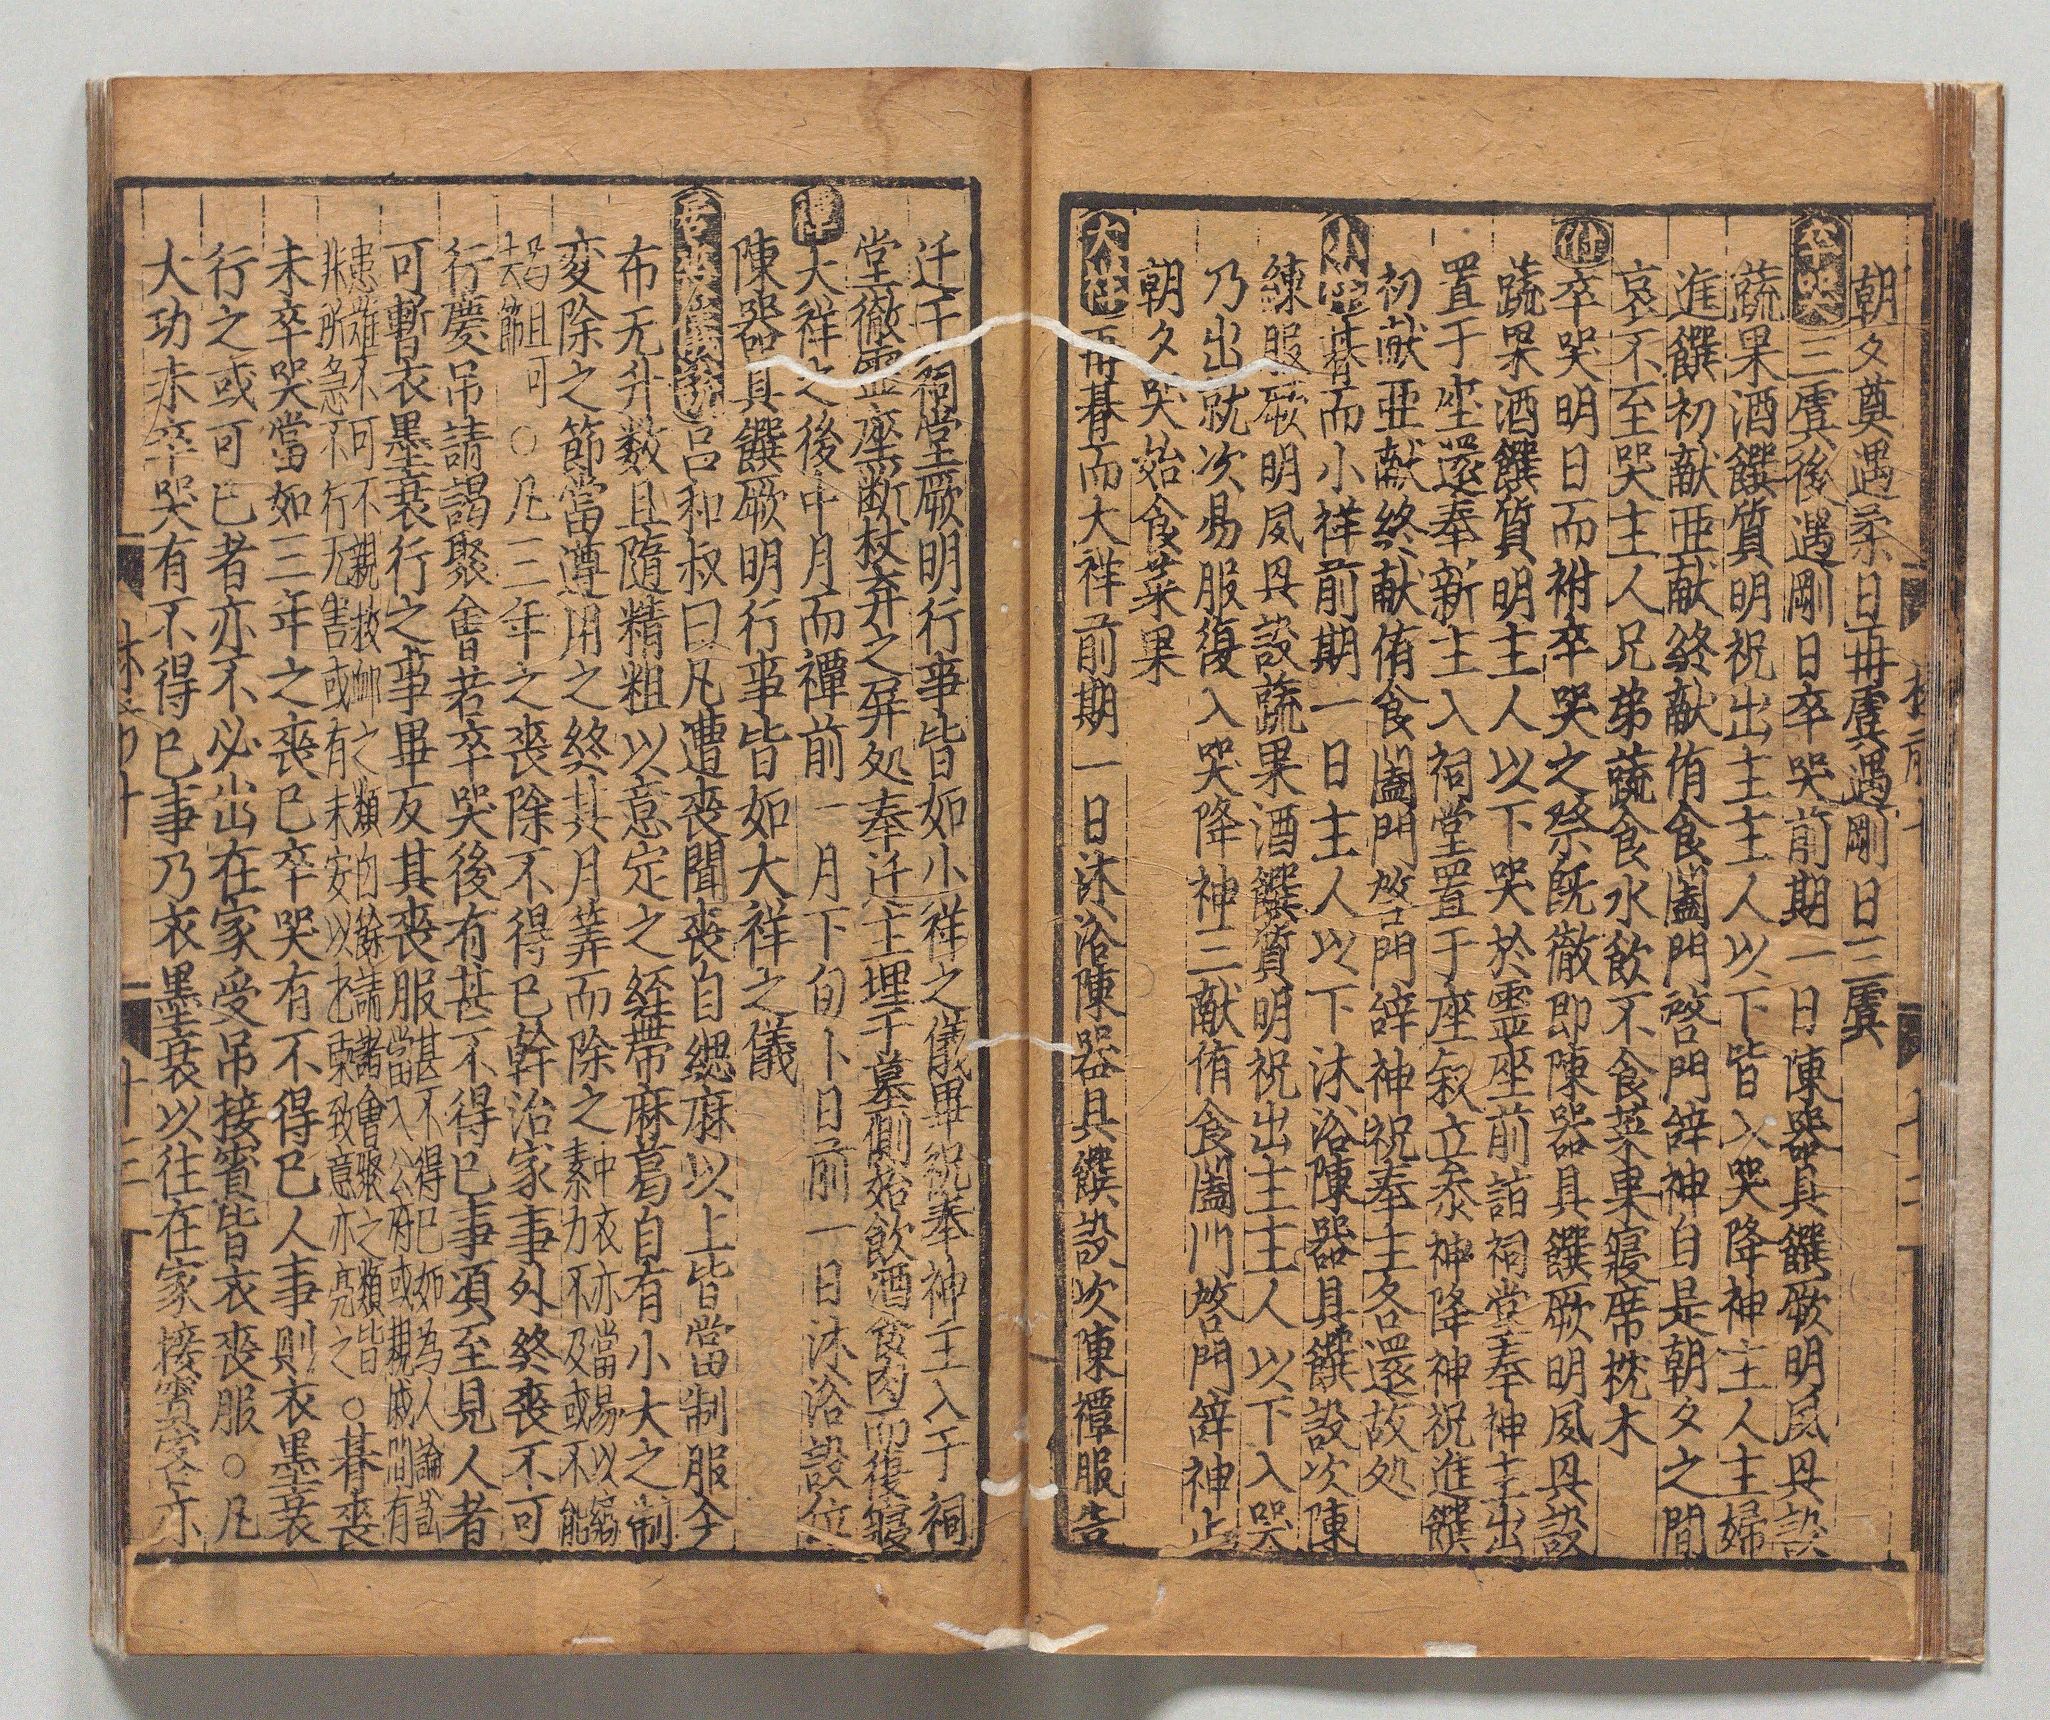 朝夕奠遇柔日再虞遇剛日三虞
卒哭三虞後遇剛日卒哭前期一日陳器具饌厥明夙具設
蔬果酒饌質明祝出主主人以下皆入哭降神主人主婦
進饌初献亜献終献侑食闔門啓門辝神自是朝夕之間
哀不至哭主人兄弟蔬食水飲不食菜果寢席枕木
祔卒哭明日而祔卒哭之祭既徹即陳器具饌厥明夙具設
蔬果酒饌質明主人以下哭於霊座前詣祠堂奉神主出
置于座還奉新主入祠堂置于座叙立叅神降神祝進饌
初献亜献終献侑食闔門啓門辝神祝奉主各還故処
小祥朞而小祥前期一日主人以下沐浴陳器具饌設次陳
練服厥明夙具設蔬果酒饌質明祝出主主人以下入哭
乃出就次易服復入哭降神三献侑食闔门啓門辝神止
朝夕哭始食菜果
大祥再朞而大祥前期一日沐浴陳器具饌設次陳禫服告
迁于祠堂厥明行事皆如小祥之儀畢祝奉神主入于祠
堂徹霊座断杖弃之屏処奉迁主埋于墓側始飲酒食肉而復寢
禫大祥之後中月而禫前一月下旬卜日前一日沐浴設位
陳器具饌厥明行事皆如大祥之儀
居喪雜儀呂和叔曰凡遭喪聞喪自緦麻以上皆當制服今
布无升数且隨精粗以意定之絰帶麻葛自有小大之制
変除之節當遵用之終其月筭而除之中衣亦當易以縞
素力不及或不能
且可
去飾○凡三年之喪除不得已幹治家事外終喪不可
行慶吊請謁聚會若卒哭後有甚不得已事須至見人者
可暫衣墨衰行之事畢反其喪服甚不得已如為人論訟
當入公府或親戚間有
患難不可不親救䘏之類自餘請諸會聚之類皆
非所急不行无害或有未安以書致意亦亮之○朞喪
未卒哭當如三年之喪已卒哭有不得已人事則衣墨衰
行之或可已者亦不必出在家受吊接賓皆衣喪服○凡
大功未卒哭有不得已事乃衣墨衰以往在家接賓客亦